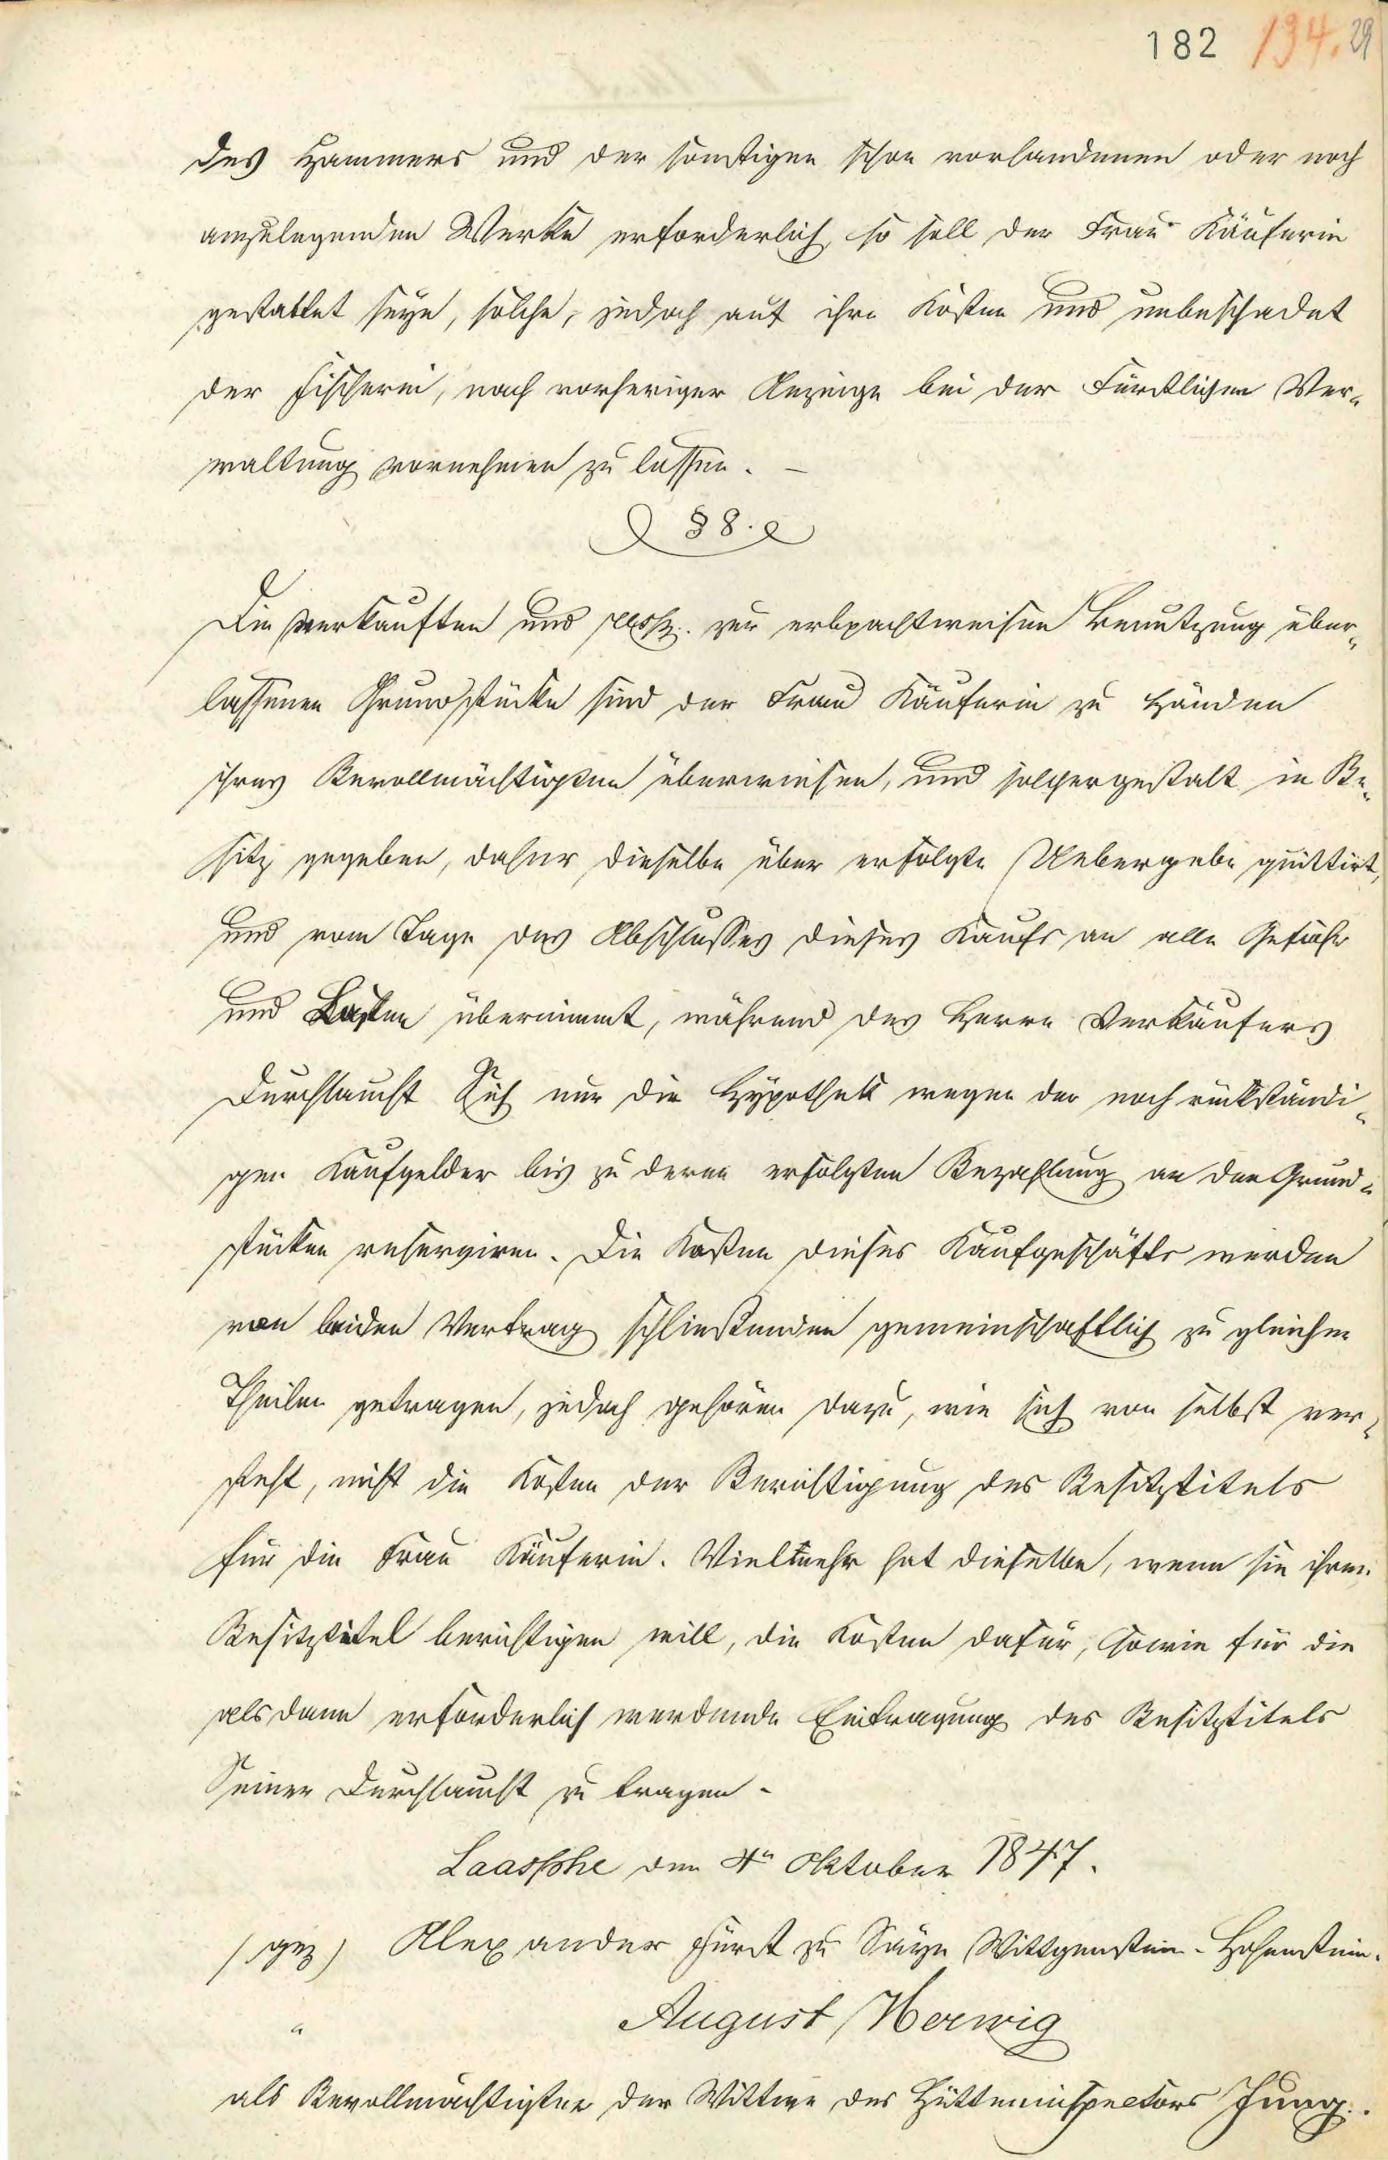 182 194. 29
des Hammers und der sonstigen schon vorhandenen oder noch
anzulegenden Werke erforderlich, so soll der Frau Käuferin
gestattet seyn, solche, jedoch auf ihre Kosten und unbeschadet
der Fischerei, nach vorheriger Anzeige bei der Fürstlichen Ver-
waltung vornehmen zu lassen. —
§ 8.
Die verkauften und resp. zur erbpachtweisen Benutzung über-
lassenen Grundstücke sind der Frau Käuferin zu Händen
ihres Bevollmächtigten überwiesen, und solchergestalt in Be-
sitz gegeben, daher dieselbe über erfolgte Uebergabe quittirt,
und vom Tage des Abschlusses dieses Kaufs an alle Gefahr
und Lasten übernimmt, während des Herrn Verkäufers
Durchlaucht Sich nur die Hypothek wegen der noch rückständi-
gen Kaufgelder bis zu deren erfolgten Bezahlung an den Grund-
stücken reserviren. Die Kosten dieses Kaufgeschäfts werden
von beiden Vertrag schließenden gemeinschaftlich zu gleichen
Theilen getragen, jedoch gehören dazu, wie sich von selbst ver-
steht, nicht die Kosten der Berichtigung des Besitztitels
für die Frau Käuferin. Vielmehr hat dieselbe, wenn sie ihren
Besitztitel berichtigen will, die Kosten dafür, sowie für die
alsdann erforderlich werdende Eintragung des Besitztitels
Seiner Durchlaucht zu tragen.
Laasphe den 4n Oktober 1847.
/gez) Alexander Fürst zu Sayn Wittgenstein-Hohenstein.
" August Herwig
als Bevollmächtigter der Wittwe des Hütteninspectors Jung.